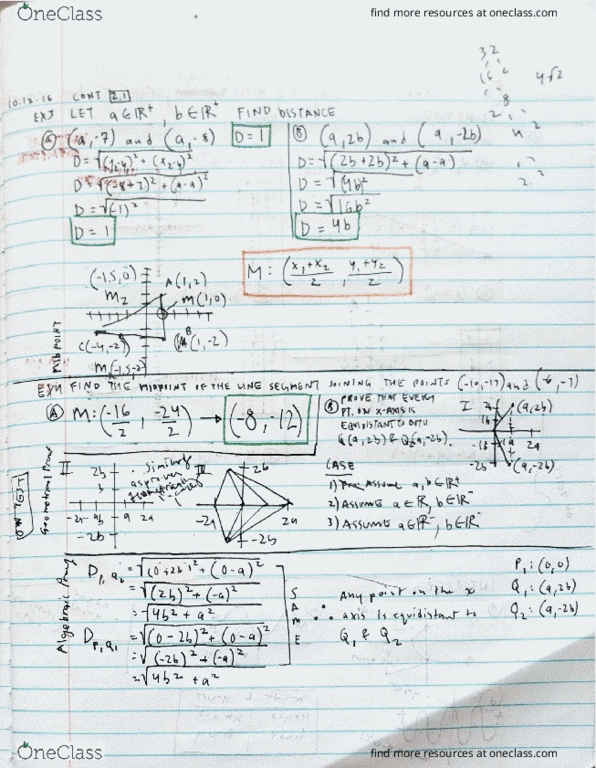 OneClass
find more resources at oneclass.com
32
16 2
4√2
8
2
10.12.16 CONT 2.1
EX3 LET a∈ℝ⁺, b∈ℝ⁺ FIND DISTANCE
Ⓐ (a,-7) and (a,-8) D=1
D=√(y₂-y₁)²+(x₂-x₁)²
D=√(-8+7)²+(a-a)²
D=√(-1)²
D=1
Ⓑ (a,2b) and (a,-2b)
D=√(2b+2b)²+(a-a)
D=√(4b)²
D=√16b²
D=4b
M: (x₁+x₂/2, y₁+y₂/2)
MIDPOINT
(-1.5,0)
M₂
A(1,2)
M(1,0)
C(-4,-2)
B(1,-2)
M(-1.5,-2)
EX4 FIND THE MIDPOINT OF THE LINE SEGMENT JOINING THE POINTS (-10,-17) and (-6,-7)
Ⓐ M: (-16/2, -24/2) → (-8,-12)
Ⓑ PROVE THAT EVERY
PT. ON X-AXIS IS
EQUIDISTANT TO BOTH
Q₁(a,2b) & Q₂(a,-2b).
I
(a,2b)
(a,-2b)
2a
-2b
ON TEST
Geometrical Proof
II
2b
-2a -a a 2a
-2b
Similar
III
2b
-2a
2a
-2b
CASE
1) Assume a,b∈ℝ⁺
2) ASSUME a∈ℝ, b∈ℝ⁻
3) ASSUME a∈ℝ⁻, b∈ℝ⁻
Algebraic Proof
D P₁Q₂ =√(0+2b)²+(0-a)²
=√(2b)²+(-a)²
=√4b²+a²
D P₁Q₁ =√(0-2b)²+(0-a)²
=√(-2b)²+(-a)²
=√4b²+a²
SAME
∴ Any point on the x
axis is equidistant to
Q₁ & Q₂
P₁: (0,0)
Q₁: (a,2b)
Q₂: (a,-2b)
OneClass
find more resources at oneclass.com